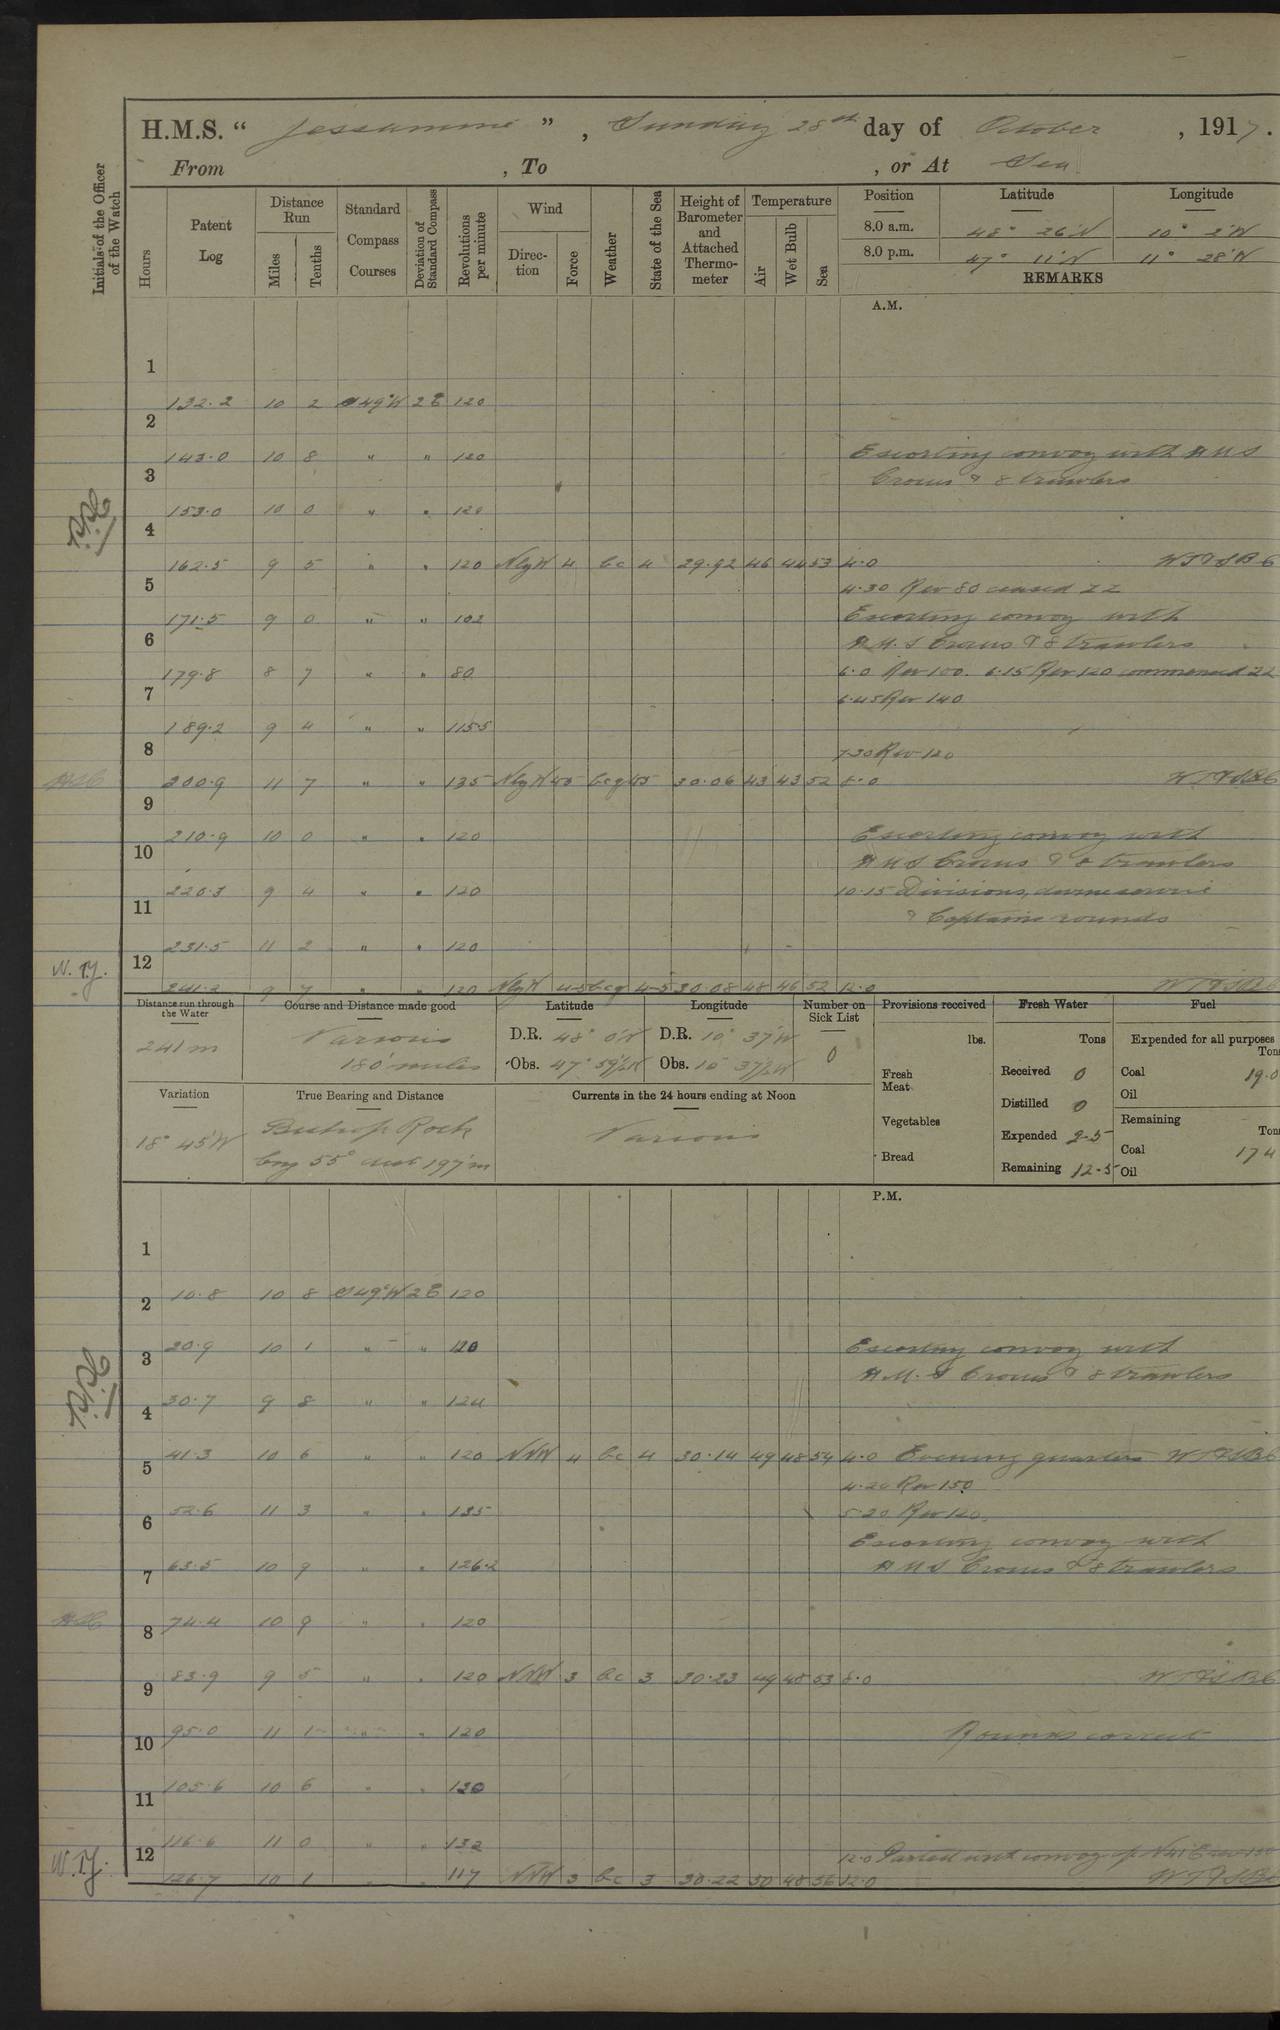 H.M.S. " Jessamine " , Sunday 28th day of October , 1917 .
From , To , or At Sea
Initials of the Officer of the Watch
Hours
Patent Log
Distance Run
Miles
Tenths
Standard Compass Courses
Deviation of Standard Compass
Revolutions per minute
Wind
Direction
Force
Weather
State of the Sea
Height of Barometer and Attached Thermometer
Temperature
Air
Wet Bulb
Sea
Position Latitude Longitude
8.0 a.m. 48° 26'N 10° 2'W
8.0 p.m. 47° 11'N 11° 28'W
REMARKS
A.M.
1 132.2 10 2 S49°W 2E 120
2 143.0 10 8 " " 120 Escorting convoy with HMS
Crocus & 8 trawlers
3 153.0 10 0 " " 120
4 162.5 9 5 " " 120 NbyW 4 bc 4 29.92 46 44 53 4.0
4.30 Rev 80 ceased ZZ
5 171.5 9 0 " " 102 Escorting convoy with
H.M.S Crocus & 8 trawlers
6 179.8 8 7 " " 80 6.0 Rev 100. 6.15 Rev 120 commenced ZZ
6.45 Rev 140
7 189.2 9 4 " " 115.5
7.30 Rev 120
8 200.9 11 7 " " 135 NbyW 4.5 bcq 45 30.06 43 43 52 8.0
9 210.9 10 0 " " 120 Escorting convoy with
HMS Crocus & 8 trawlers
10 220.3 9 4 " " 120 10.15 Divisions, divine service
& Captains rounds
11 231.5 11 2 " " 120
12 241.2 9 7 " " 120 NbyW 4-5 bcq 4-5 30.08 48 46 52 12.0
W.T.Y.
Distance run through the Water
241 m
Course and Distance made good
Various
180 miles
Latitude
D.R. 48° 0'N
Obs. 47° 59½'N
Longitude
D.R. 10° 37'W
Obs. 10° 37½'W
Number on Sick List
0
Provisions received
lbs.
Fresh Meat
Vegetables
Bread
Fresh Water
Tons
Received 0
Distilled 0
Expended 2.5
Remaining 12.5
Fuel
Expended for all purposes
Tons
Coal 19.0
Oil
Remaining
Tons
Coal 174
Oil
Variation
18° 45'W
True Bearing and Distance
Bishop Rock
brg 55° dist 197'm
Currents in the 24 hours ending at Noon
Various
P.M.
1 10.8 10 8 S49°W 2E 120
2 20.9 10 1 " " 120 Escorting convoy with
H.M.S Crocus & 8 trawlers
3 30.7 9 8 " " 120
4 41.3 10 6 " " 120 NNW 4 bc 4 30.14 49 48 54 4.0 Evening quarters
4.20 Rev 150
5 52.6 11 3 " " 135 5.20 Rev 120.
Escorting convoy with
6 63.5 10 9 " " 126.2 HMS Crocus & 8 trawlers
7 74.4 10 9 " " 120
8 83.9 9 5 " " 120 NNW 3 bc 3 30.23 49 48 53 8.0
9 95.0 11 1 " " 120 Rounds correct
10 105.6 10 6 " " 120
11 116.6 11 0 " " 132
12.0 Parted with convoy
12 126.7 10 1 " " 117 NNW 3 bc 3 30.22 50 48 56 12.0
W.T.Y.